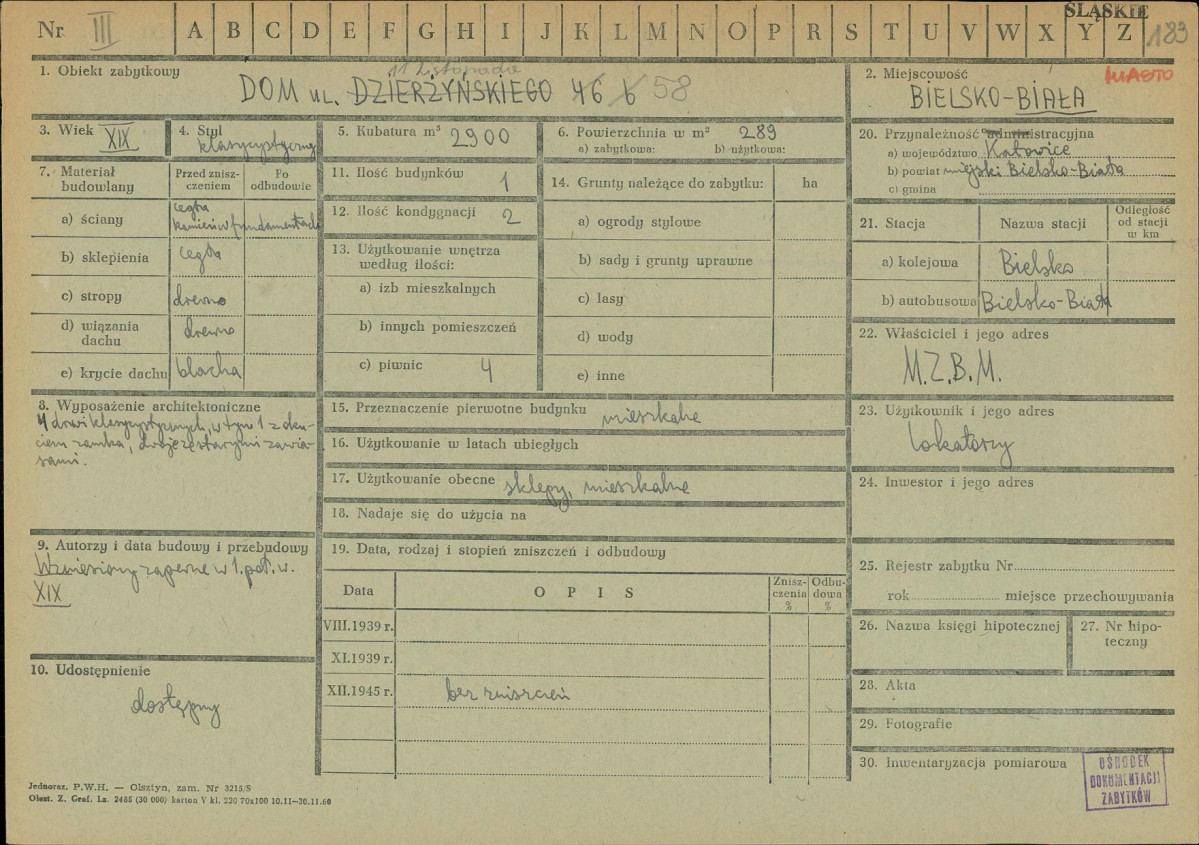 ŚLĄSKIE
Nr III A B C D E F G H I J K L M N O P R S T U V W X Y Z 183
1. Obiekt zabytkowy
11 Listopada
DOM ul. DZIERŻYŃSKIEGO 46 6 58
2. Miejscowość MIASTO
BIELSKO-BIAŁA
3. Wiek XIX
4. Styl klasycystyczny
5. Kubatura m³ 2900
6. Powierzchnia w m² 289
a) zabytkowa: b) użytkowa:
7. Materiał budowlany
Przed zniszczeniem
Po odbudowie
a) ściany cegła kamień w fundamentach
b) sklepienia cegła
c) stropy drewno
d) wiązania dachu drewno
e) krycie dachu blacha
8. Wyposażenie architektoniczne
4 drzwi klasycystycznych, w tym 1 z oku-
ciem zamka, dwoje ze starymi zawia-
sami.
9. Autorzy i data budowy i przebudowy
Wzniesiony zapewne w 1. poł. w.
XIX
10. Udostępnienie
dostępny
11. Ilość budynków 1
12. Ilość kondygnacji 2
13. Użytkowanie wnętrza
według ilości:
a) izb mieszkalnych
b) innych pomieszczeń
c) piwnic 4
14. Grunty należące do zabytku: ha
a) ogrody stylowe
b) sady i grunty uprawne
c) lasy
d) wody
e) inne
15. Przeznaczenie pierwotne budynku mieszkalne
16. Użytkowanie w latach ubiegłych
17. Użytkowanie obecne sklepy, mieszkalne
18. Nadaje się do użycia na
19. Data, rodzaj i stopień zniszczeń i odbudowy
Data OPIS Zniszczenia % Odbudowa %
VIII.1939 r.
XI.1939 r.
XII.1945 r. bez zniszczeń
20. Przynależność administracyjna
a) województwo Katowice
b) powiat miejski Bielsko-Biała
c) gmina
21. Stacja Nazwa stacji Odległość od stacji w km
a) kolejowa Bielsko
b) autobusowa Bielsko-Biała
22. Właściciel i jego adres
M.Z.B.M.
23. Użytkownik i jego adres
lokatorzy
24. Inwestor i jego adres
25. Rejestr zabytku Nr
rok miejsce przechowywania
26. Nazwa księgi hipotecznej
27. Nr hipo-
teczny
28. Akta
29. Fotografie
30. Inwentaryzacja pomiarowa
OŚRODEK
DOKUMENTACJI
ZABYTKÓW
Jednoraz. P.W.H. — Olsztyn, zam. Nr 3215/S
Olszt. Z. Graf. Lz. 2485 (30 000) karton V kl. 220 70x100 10.11—30.11.60